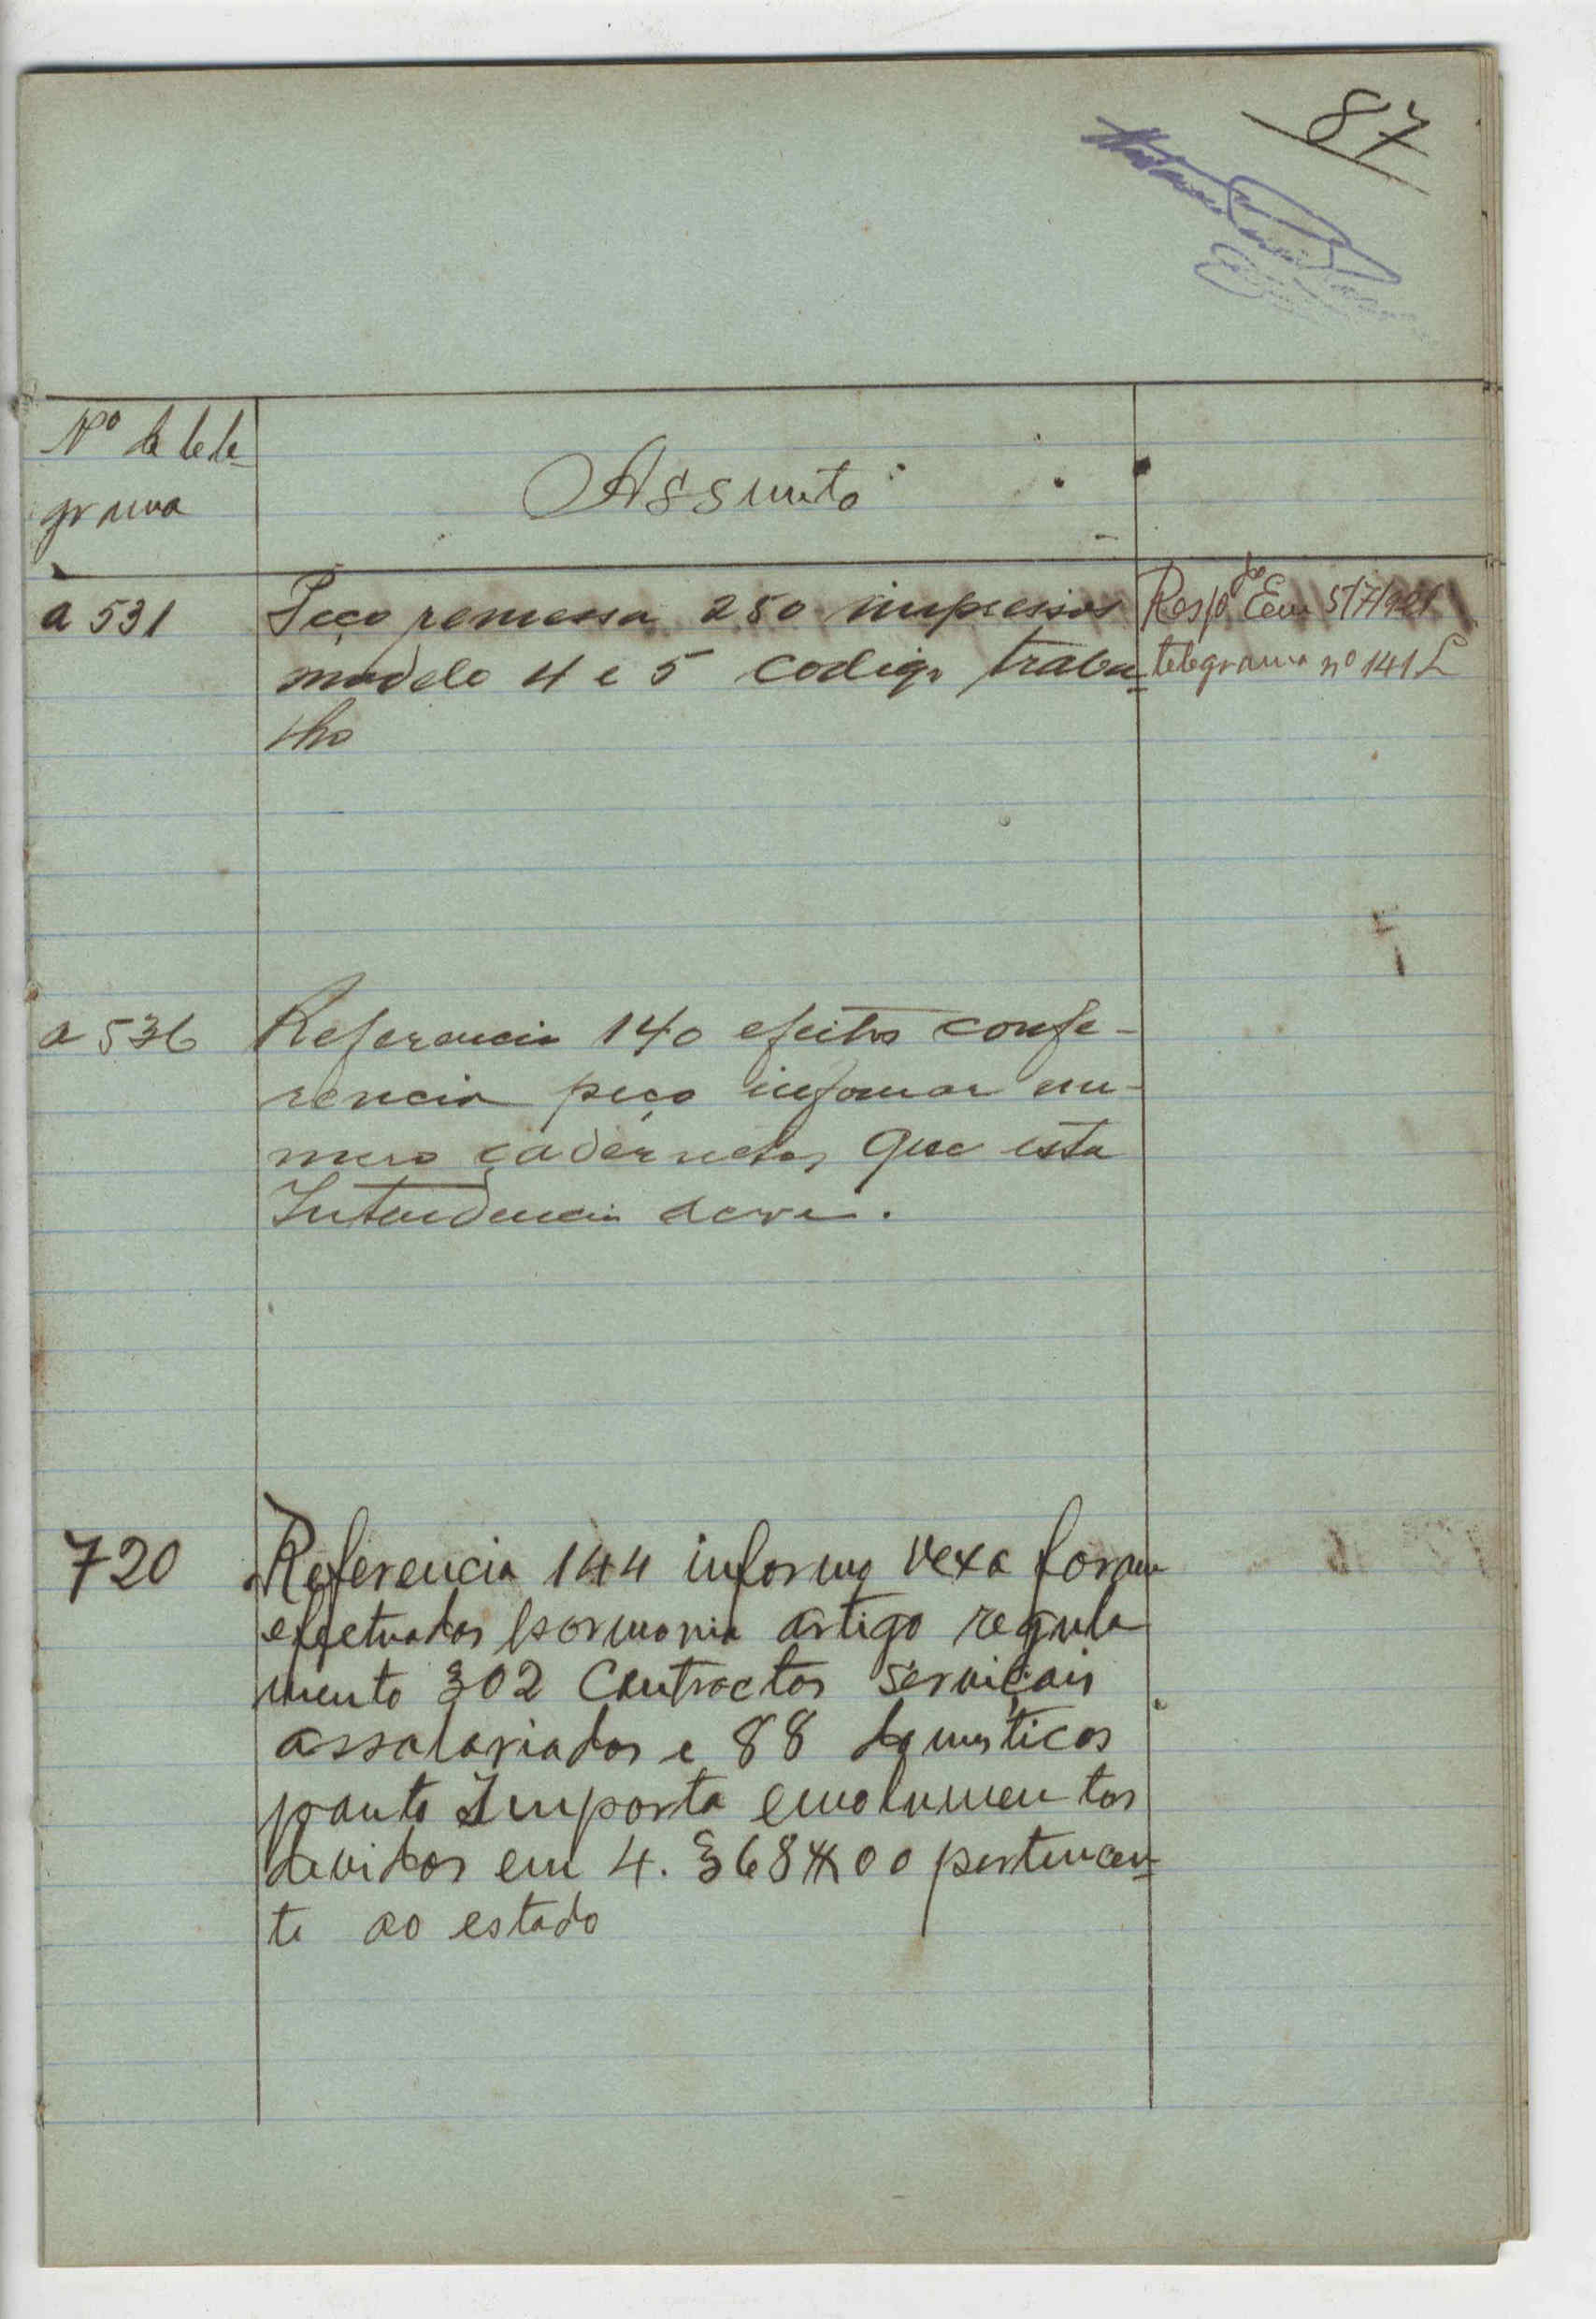 87
Nº de tele-
grama
Assunto
a 531
Peço remessa 250 impressos
modelo 4 e 5 codigo traba-
lho
Resp.do Em 5/7/921
telegrama nº 141 L
a 536
Referencia 140 efeitos confe-
rencia peço informar nu-
mero cadernetas que esta
Intendencia deve.
720
Referencia 144 informo vexa foram
efectuados harmonia artigo regula
mento 302 Contractos serviçais
assalariados e 88 domesticos
ponto Importa emolumentos
devidos em 4.368$00 pertencen-
te ao estado